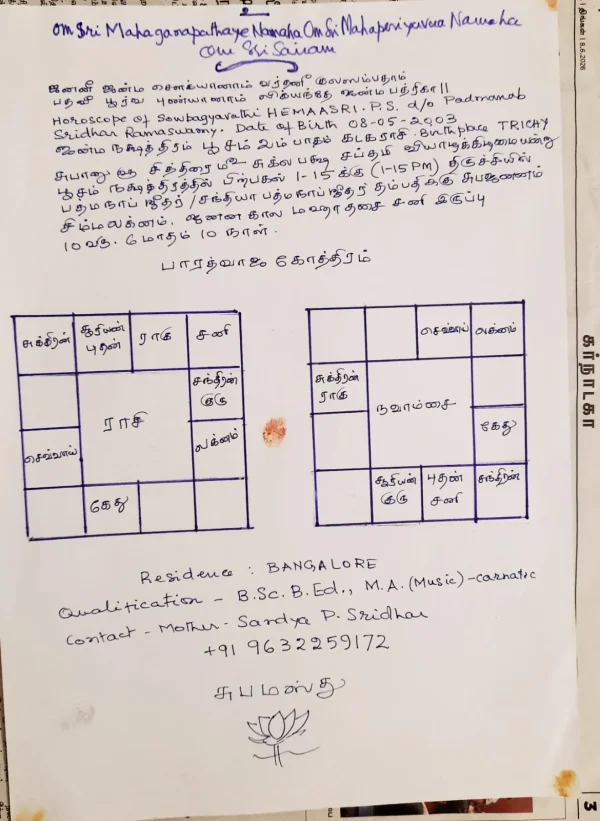 உ
Om Sri Mahaganapathaye Namaha Om Sri Mahaperiyavaa Namaha
Om Sri Sairam
ஜனனீ ஜன்ம சௌக்யானாம் வர்தனீ குலஸம்பதாம்
பதவீ பூர்வ புண்யானாம் லிக்யதே ஜன்ம பத்ரிகா ||
Horoscope of Sowbagyavathi HEMAASRI. P.S. d/o Padmanab
Sridhar Ramaswamy. Date of Birth 08-05-2003
ஜன்ம நக்ஷத்திரம் பூசம் 2ம் பாதம் கடகராசி. Birthplace TRICHY
சுபானு ௵ சித்திரை மீ சுக்ல பக்ஷ சப்தமி வியாழக்கிழமையன்று
பூசம் நக்ஷத்திரத்தில் பிற்பகல் 1-15 க்கு (1-15 PM) திருச்சியில்
பத்மநாப் ஸ்ரீதர் / சந்தியா பத்மநாப் ஸ்ரீதர் தம்பதிக்கு சுபஜனனம்
சிம்மலக்னம். ஜனன கால மஹா தசை சனி இருப்பு
10 வரு. 6 மாதம் 10 நாள்.
பாரத்வாஜ கோத்திரம்
சுக்கிரன் சூரியன் புதன் ராகு சனி
சந்திரன் குரு
ராசி
செவ்வாய் லக்னம்
கேது
செவ்வாய் லக்னம்
சுக்கிரன் ராகு
நவாம்சை
கேது
சூரியன் குரு புதன் சனி சந்திரன்
Residence : BANGALORE
Qualification - B.Sc. B.Ed., M.A. (Music) - carnatic
Contact - Mother - Sandya P. Sridhar
+91 9632259172
சுபமஸ்து
8.6.2026
கர்நாடகா
3